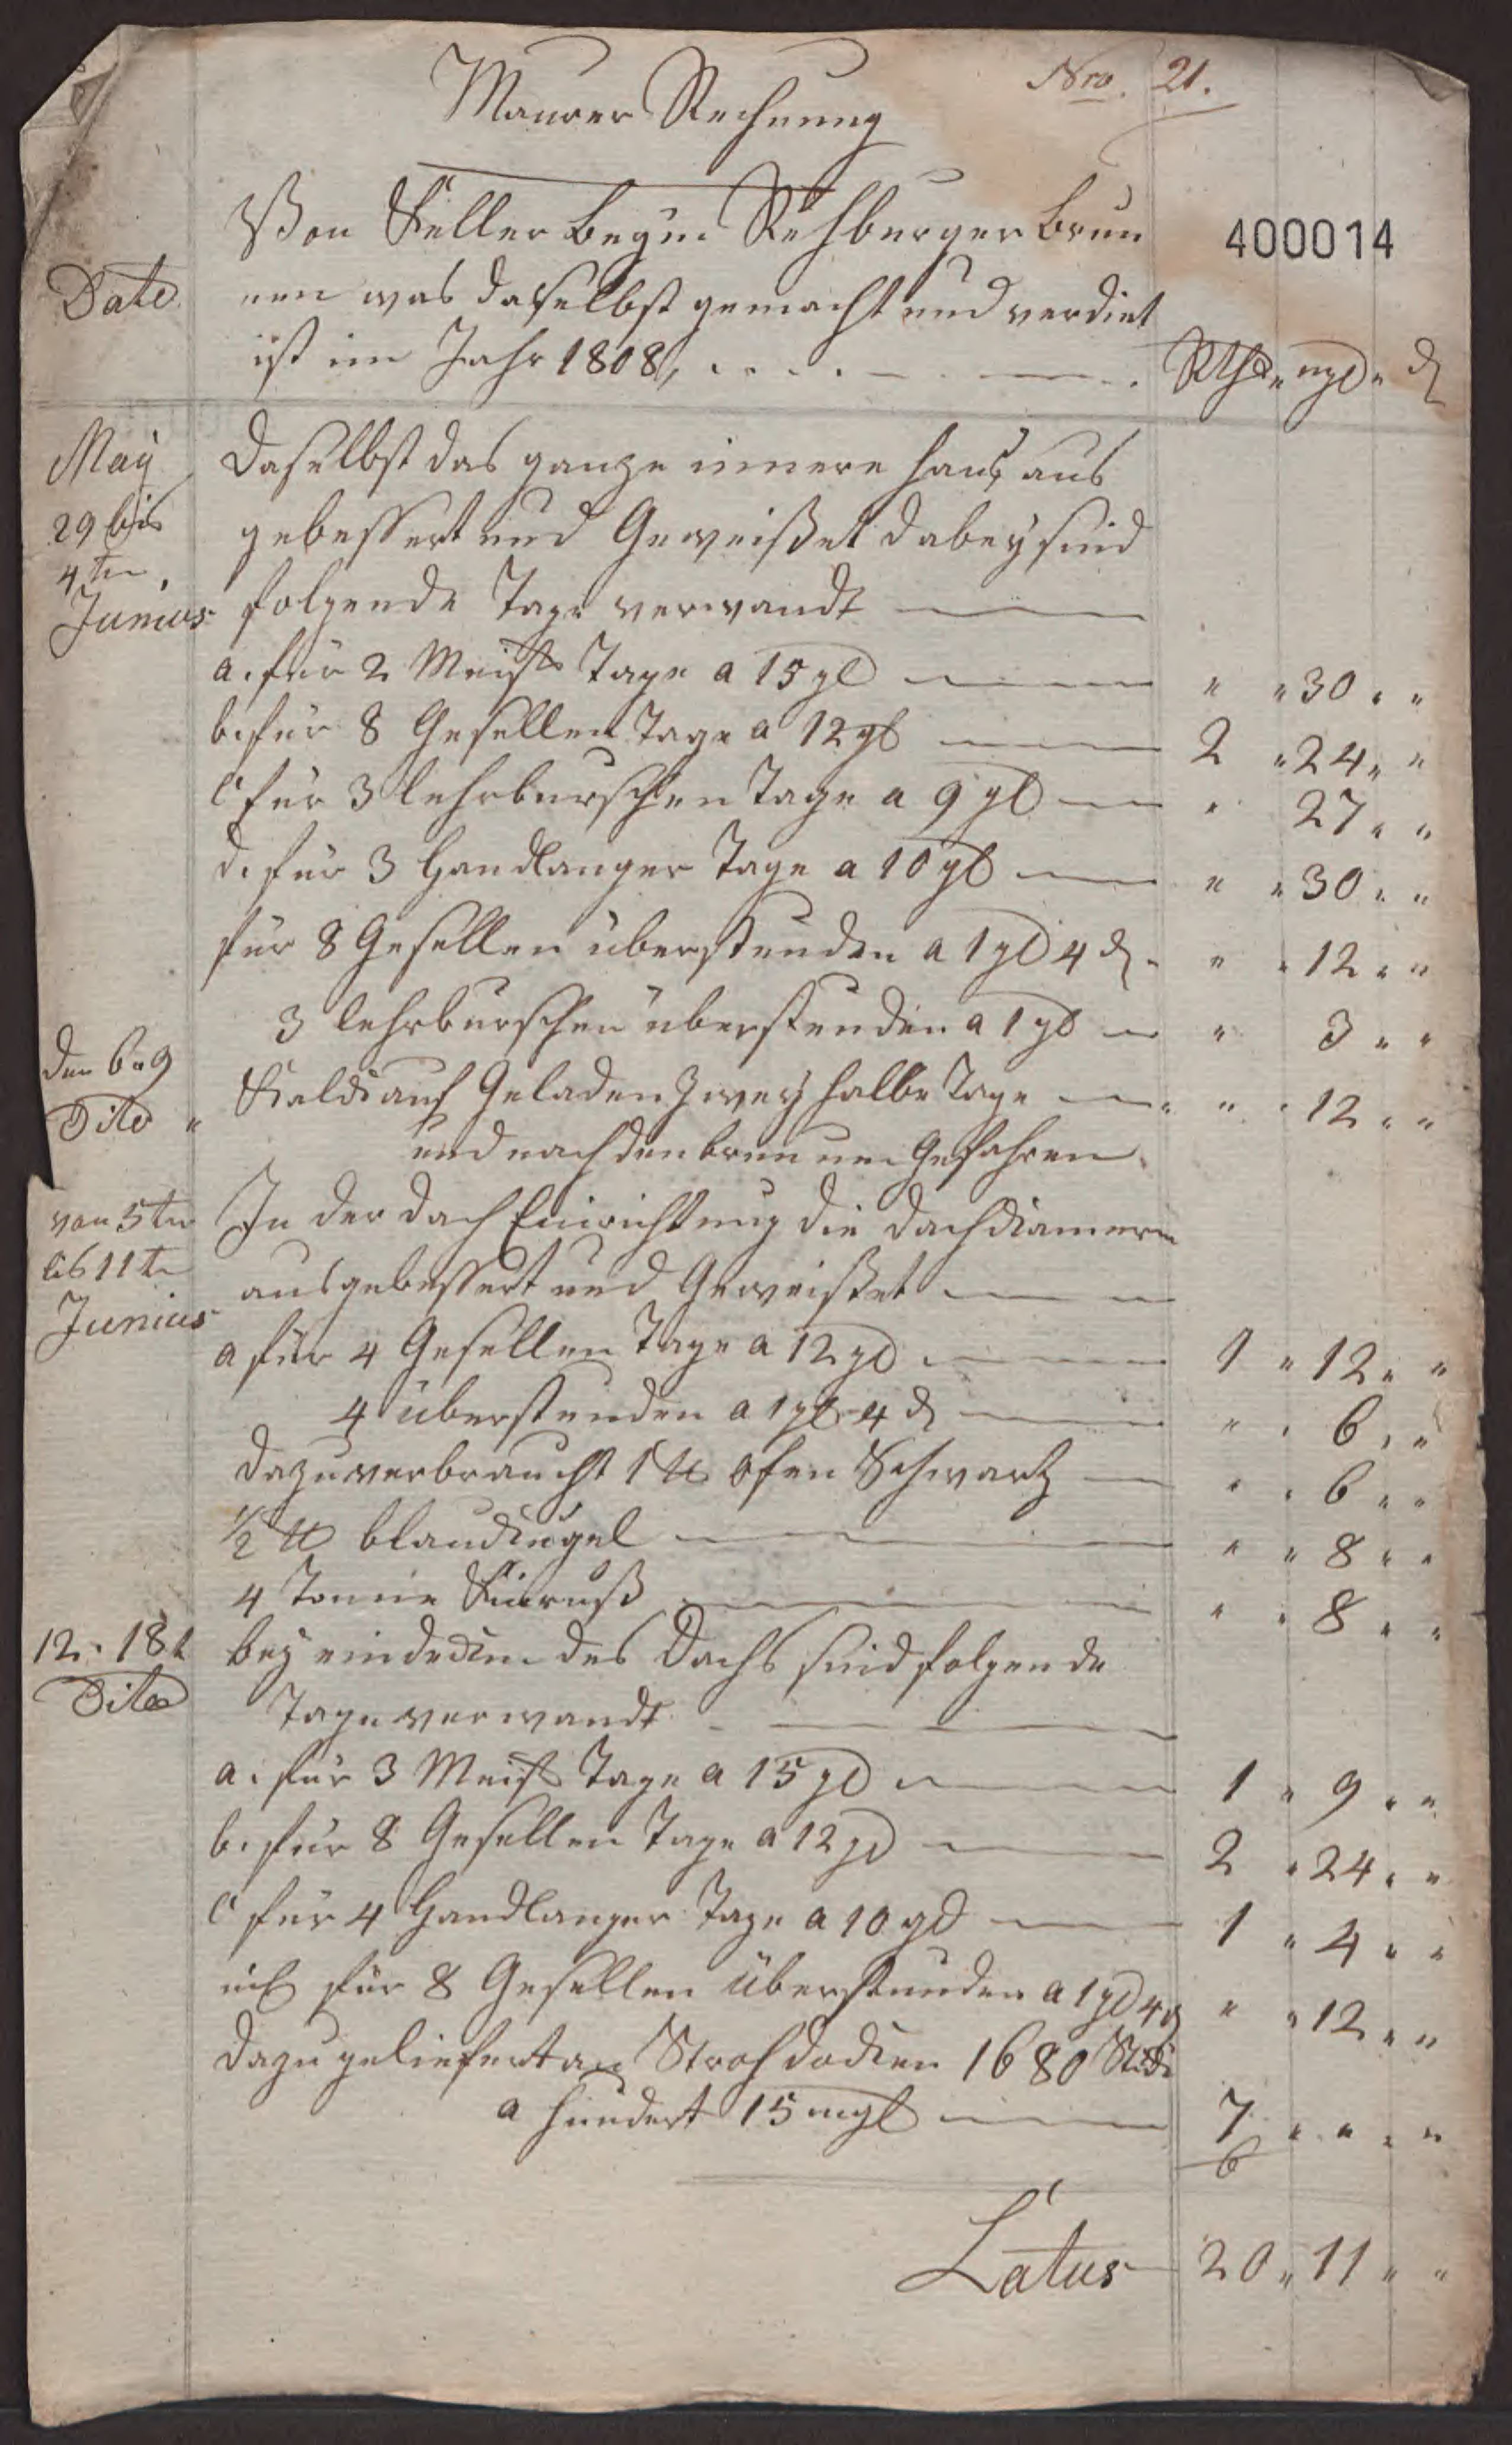 Nro. 21.
Maurer Rechnung
400014
Von Keller beym Rehburger brun
Date
nen was daselbst gemacht und verdint
ist im Jahr 1808,
Rth " mgl " ₰
May
29 bis
4ten
Junius
daselbst das ganze innere hauß aus
gebessert und Geweißet dabey sind
folgende Tage verwandt
a. für 2 Meist Tage a 15 gl " " 30 " "
b. für 8 Gesellen Tage a 12 gl 2 " 24 " "
c für 3 lehrburschen Tage a 9 gl " 27 " "
d. für 3 Handlanger Tage a 10 gl " " 30 " "
für 8 Gesellen überstunden a 1 gl 4 ₰ " " 12 " "
3 lehrburschen überstunden a 1 gl " 3 " "
den 6 " 9
Dito "
Kalck auf Geladen Zwey halbe Tage " " 12 " "
und nach den brunnen Gefahren
von 5ten
bis 11te
Junius
In der dach Einrichtung die dachkamern
ausgebessert und Geweißet
a für 4 Gesellen Tage a 12 gl 1 " 12 " "
4 überstunden a 1 gl 4 ₰ " " 6 " "
dazu verbraucht 1 ℔ ofen Schwartz " " 6 " "
1/2 ℔ blaukugel " " 8 " "
4 Tonne Kinruß " " 8 " "
12 " 18t
Dito
bey eindecken des Dachs sind folgende
Tage verwandt
a. für 3 Meist Tage a 15 gl 1 " 9 " "
b. für 8 Gesellen Tage a 12 gl 2 " 24 " "
c für 4 Handlanger Tage a 10 gl 1 " 4 " "
für 8 Gesellen überstunden a 1 gl 4 ₰ " " 12 " "
dazu geliefert an Strohdocken 1680 Stück
a hundert 15 mgl 7 " " " "
6
Latus 20 " 11 " "